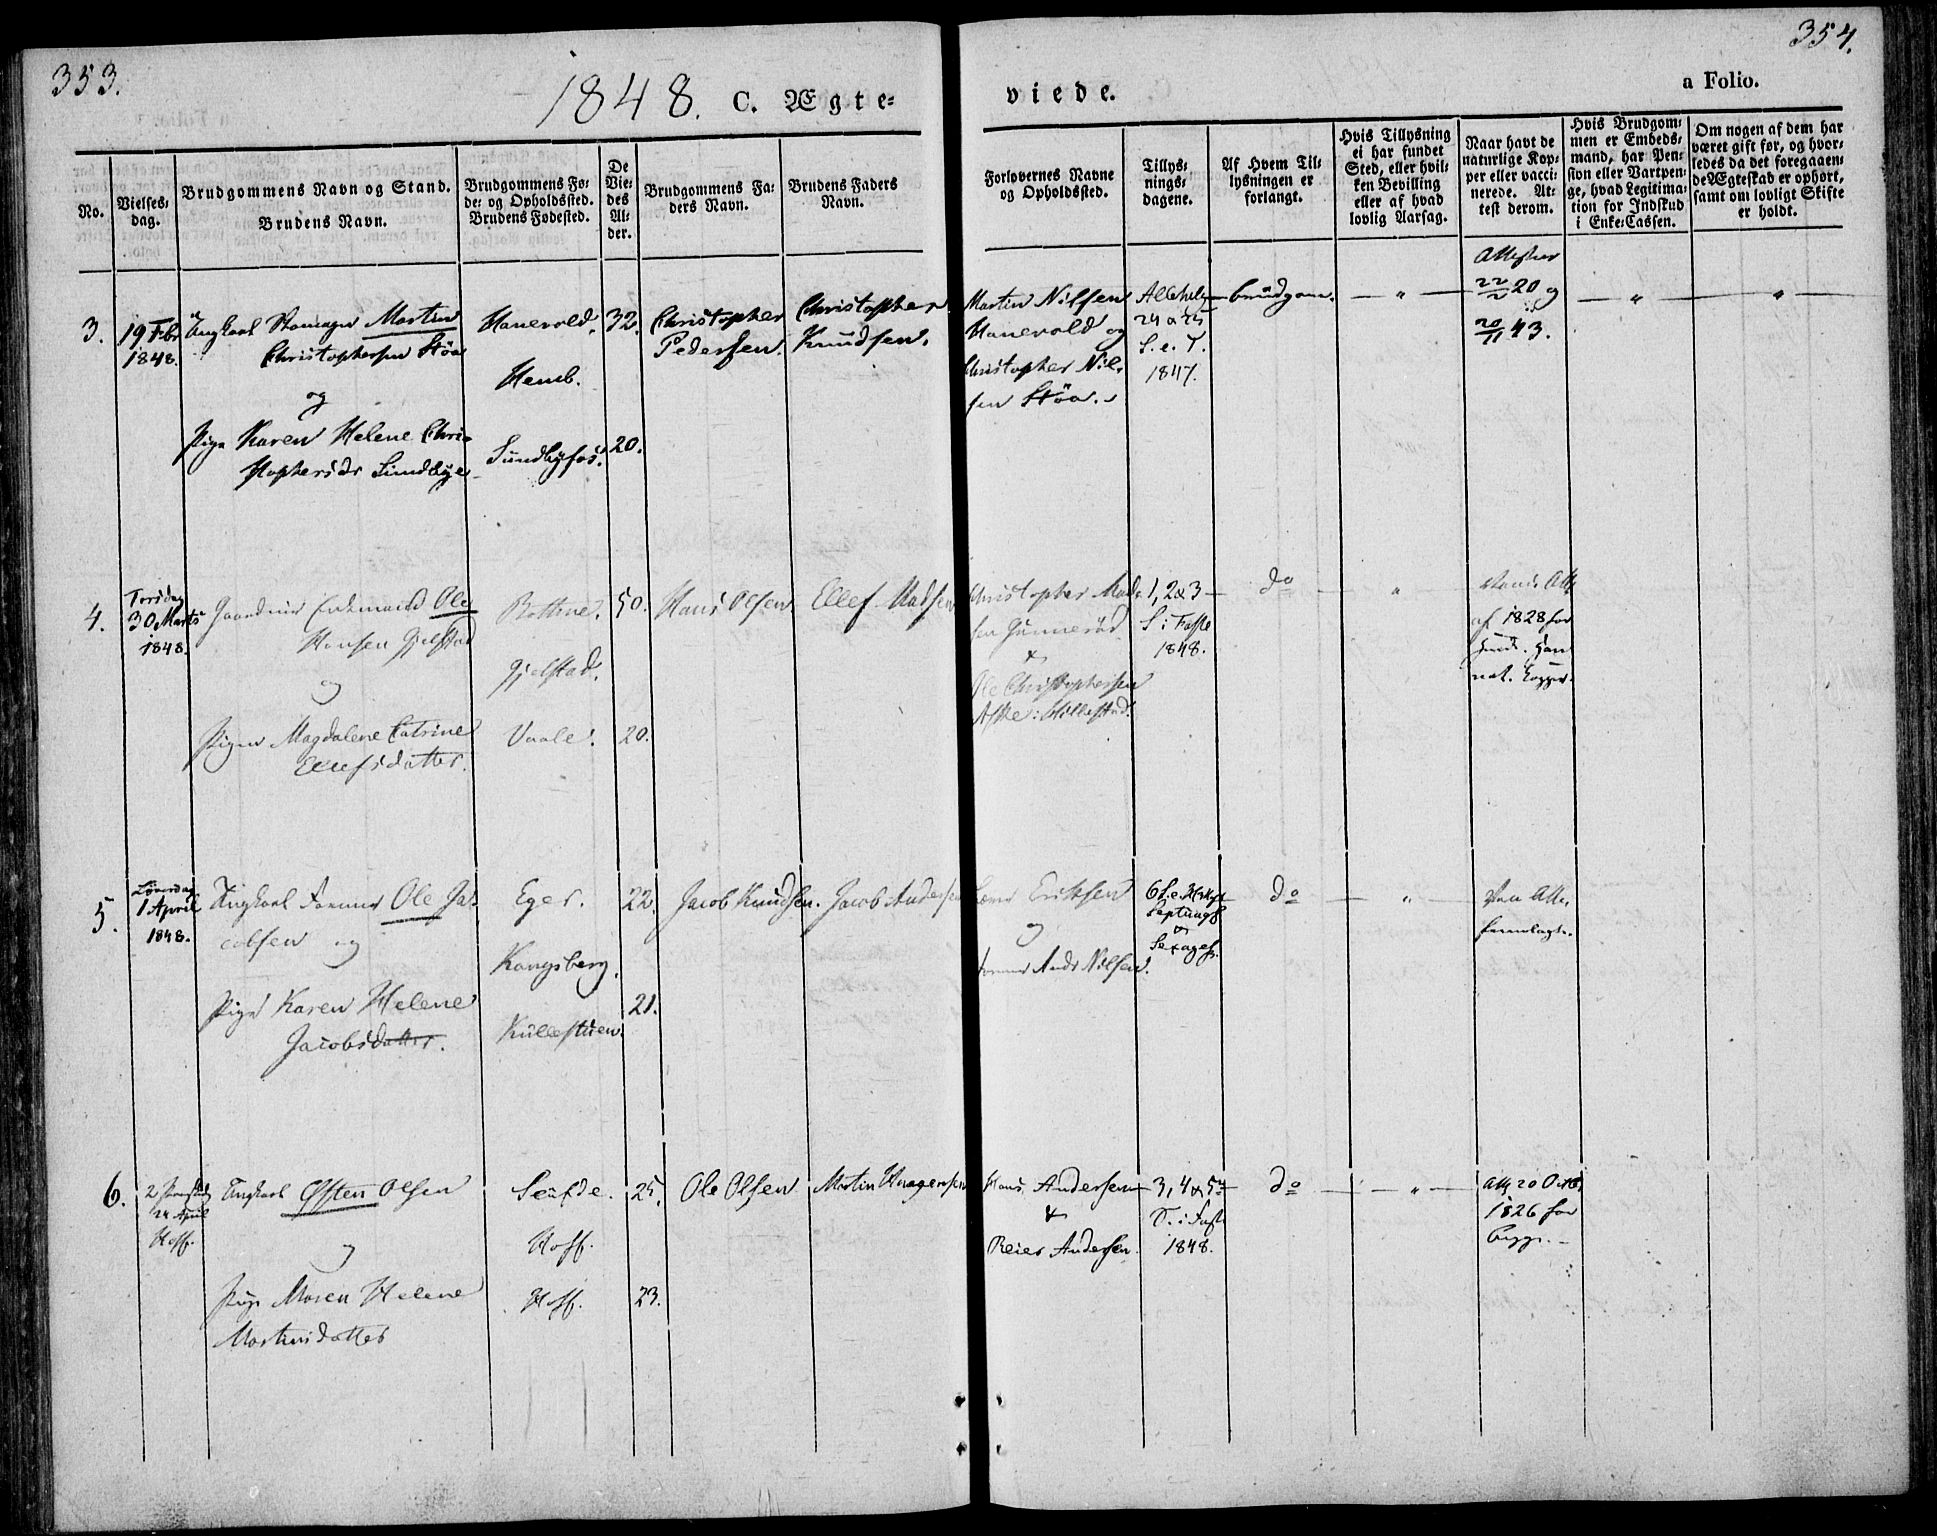 353.
354.
1848. C. Ægte=
viede.
a Folio.
No.
Vielses=
dag.
Brudgommens Navn og Stand.
Brudens Navn.
Brudgommens Fø=
de= og Opholdssted.
Brudens Fødested.
De
Vie=
des
Al=
der.
Brudgommens Fa=
ders Navn.
Brudens Faders
Navn.
Forlovernes Navne
og Opholdssted.
Tillys=
nings=
dagene.
Af Hvem Til=
lysningen er
forlangt.
Hvis Tillysning
ei har fundet
Sted, eller hvil=
ken Bevilling
eller af hvad
lovlig Aarsag.
Naar havt de
naturlige Kop=
per eller vacci=
nerede. At=
test derom.
Hvis Brudgom=
men er Embeds=
mand, har Pen=
sion eller Vartpen=
ge, hvad Legitima=
tion for Indskud
i Enke=Cassen.
Om nogen af dem har
været gift før, og hvor=
ledes da det foregaaen=
de Ægteskab er ophørt,
samt om lovligt Skifte
er holdt.
3.
19 Febr
1848.
Ungkarl Martin
Christophersen Stöa
og
Pige Karen Helene Chri-
stophersdr Sundbye
Hanevold.
Hemb.
Sundbyfos.
32.
20.
Christopher
Pedersen.
Christopher
Knudsen.
Martin Nilsen
Hanevold og
Christopher Nil-
sen Stöa.
24 & 25
S. e. T.
1847.
brudgom.
Attester
22/2 20 og
20/11 43.
4.
Torsdag
30 Marts
1848.
Gaardmd Enkemand Ole
Hansen Gjelstad
og
Pigen Magdalene Catrine
Ellefsdatter.
Bottne.
Gjelstad.
Vaale.
50.
20.
Hans Olsen
Ellef Madsen
Christopher Mad-
sen Gunnerød
&
Ole Christophersen
Aske: Hillestad.
1, 2 & 3
S. i Faste
1848.
do
Vacc. Att.
af 1828 for
hende. Han
nat. Kopper.
5.
Løverdag
1 April
1848.
Ungkarl Former Ole Ja-
cobsen og
Pige Karen Helene
Jacobsdatter.
Eger.
Kongsberg.
Kullestuen.
22.
21.
Jacob Knudsen.
Jacob Andersen
Eriksen
og
Former Andr Nilsen.
6 S. e. H. 3 K.
Septuages
&
Sexages.
do
Vacc Att.
fremlagt.
6.
24 April
Hoff.
Ungkarl Østen Olsen
og
Pige Maren Helene
Martinsdatter
Hoff.
Hoff.
25.
23.
Ole Olsen
Martin Haagensen
Hans Andersen
&
Reier Andersen.
3, 4 & 5te
S. i Fast
1848.
do
Att 20 Octb
1826 for
begge.